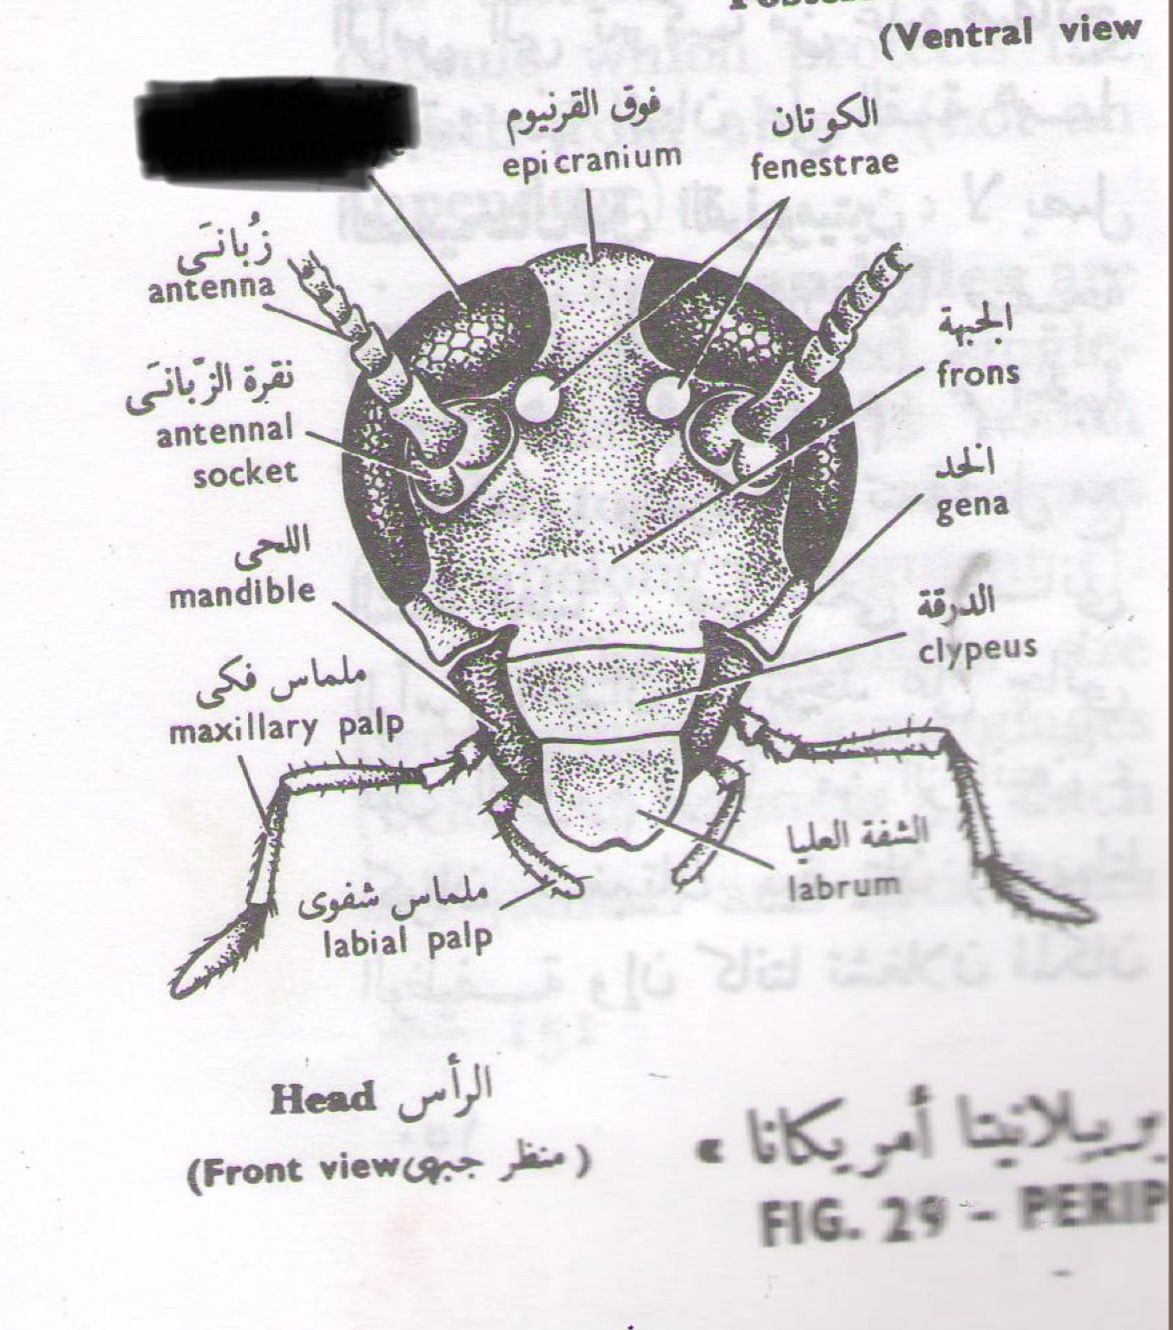 (Ventral view
فوق القرنيوم
epicranium
الكوتان
fenestrae
زُبانَى
antenna
الجبهة
frons
نقرة الزّبانَى
antennal
socket
الخد
gena
اللحى
mandible
الدرقة
clypeus
ملماس فكى
maxillary palp
الشفة العليا
labrum
ملماس شفوى
labial palp
Head الرأس
(Front view منظر جبهى)
بيريبلانيتا أمريكانا »
FIG. 29 - PERIP